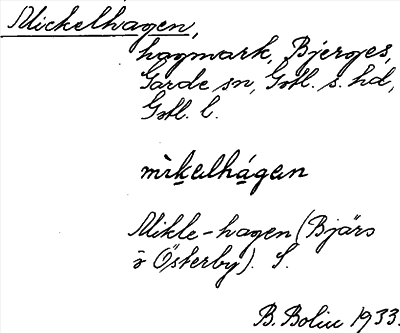 Mickelhagen,
hagmark, Bjerges,
Garde sn, Gotl. s. hd,
Gotl. l.
mìkalhágen
Mikle-hagen (Bjärs
i Österby). S.
B. Bolin 1933.